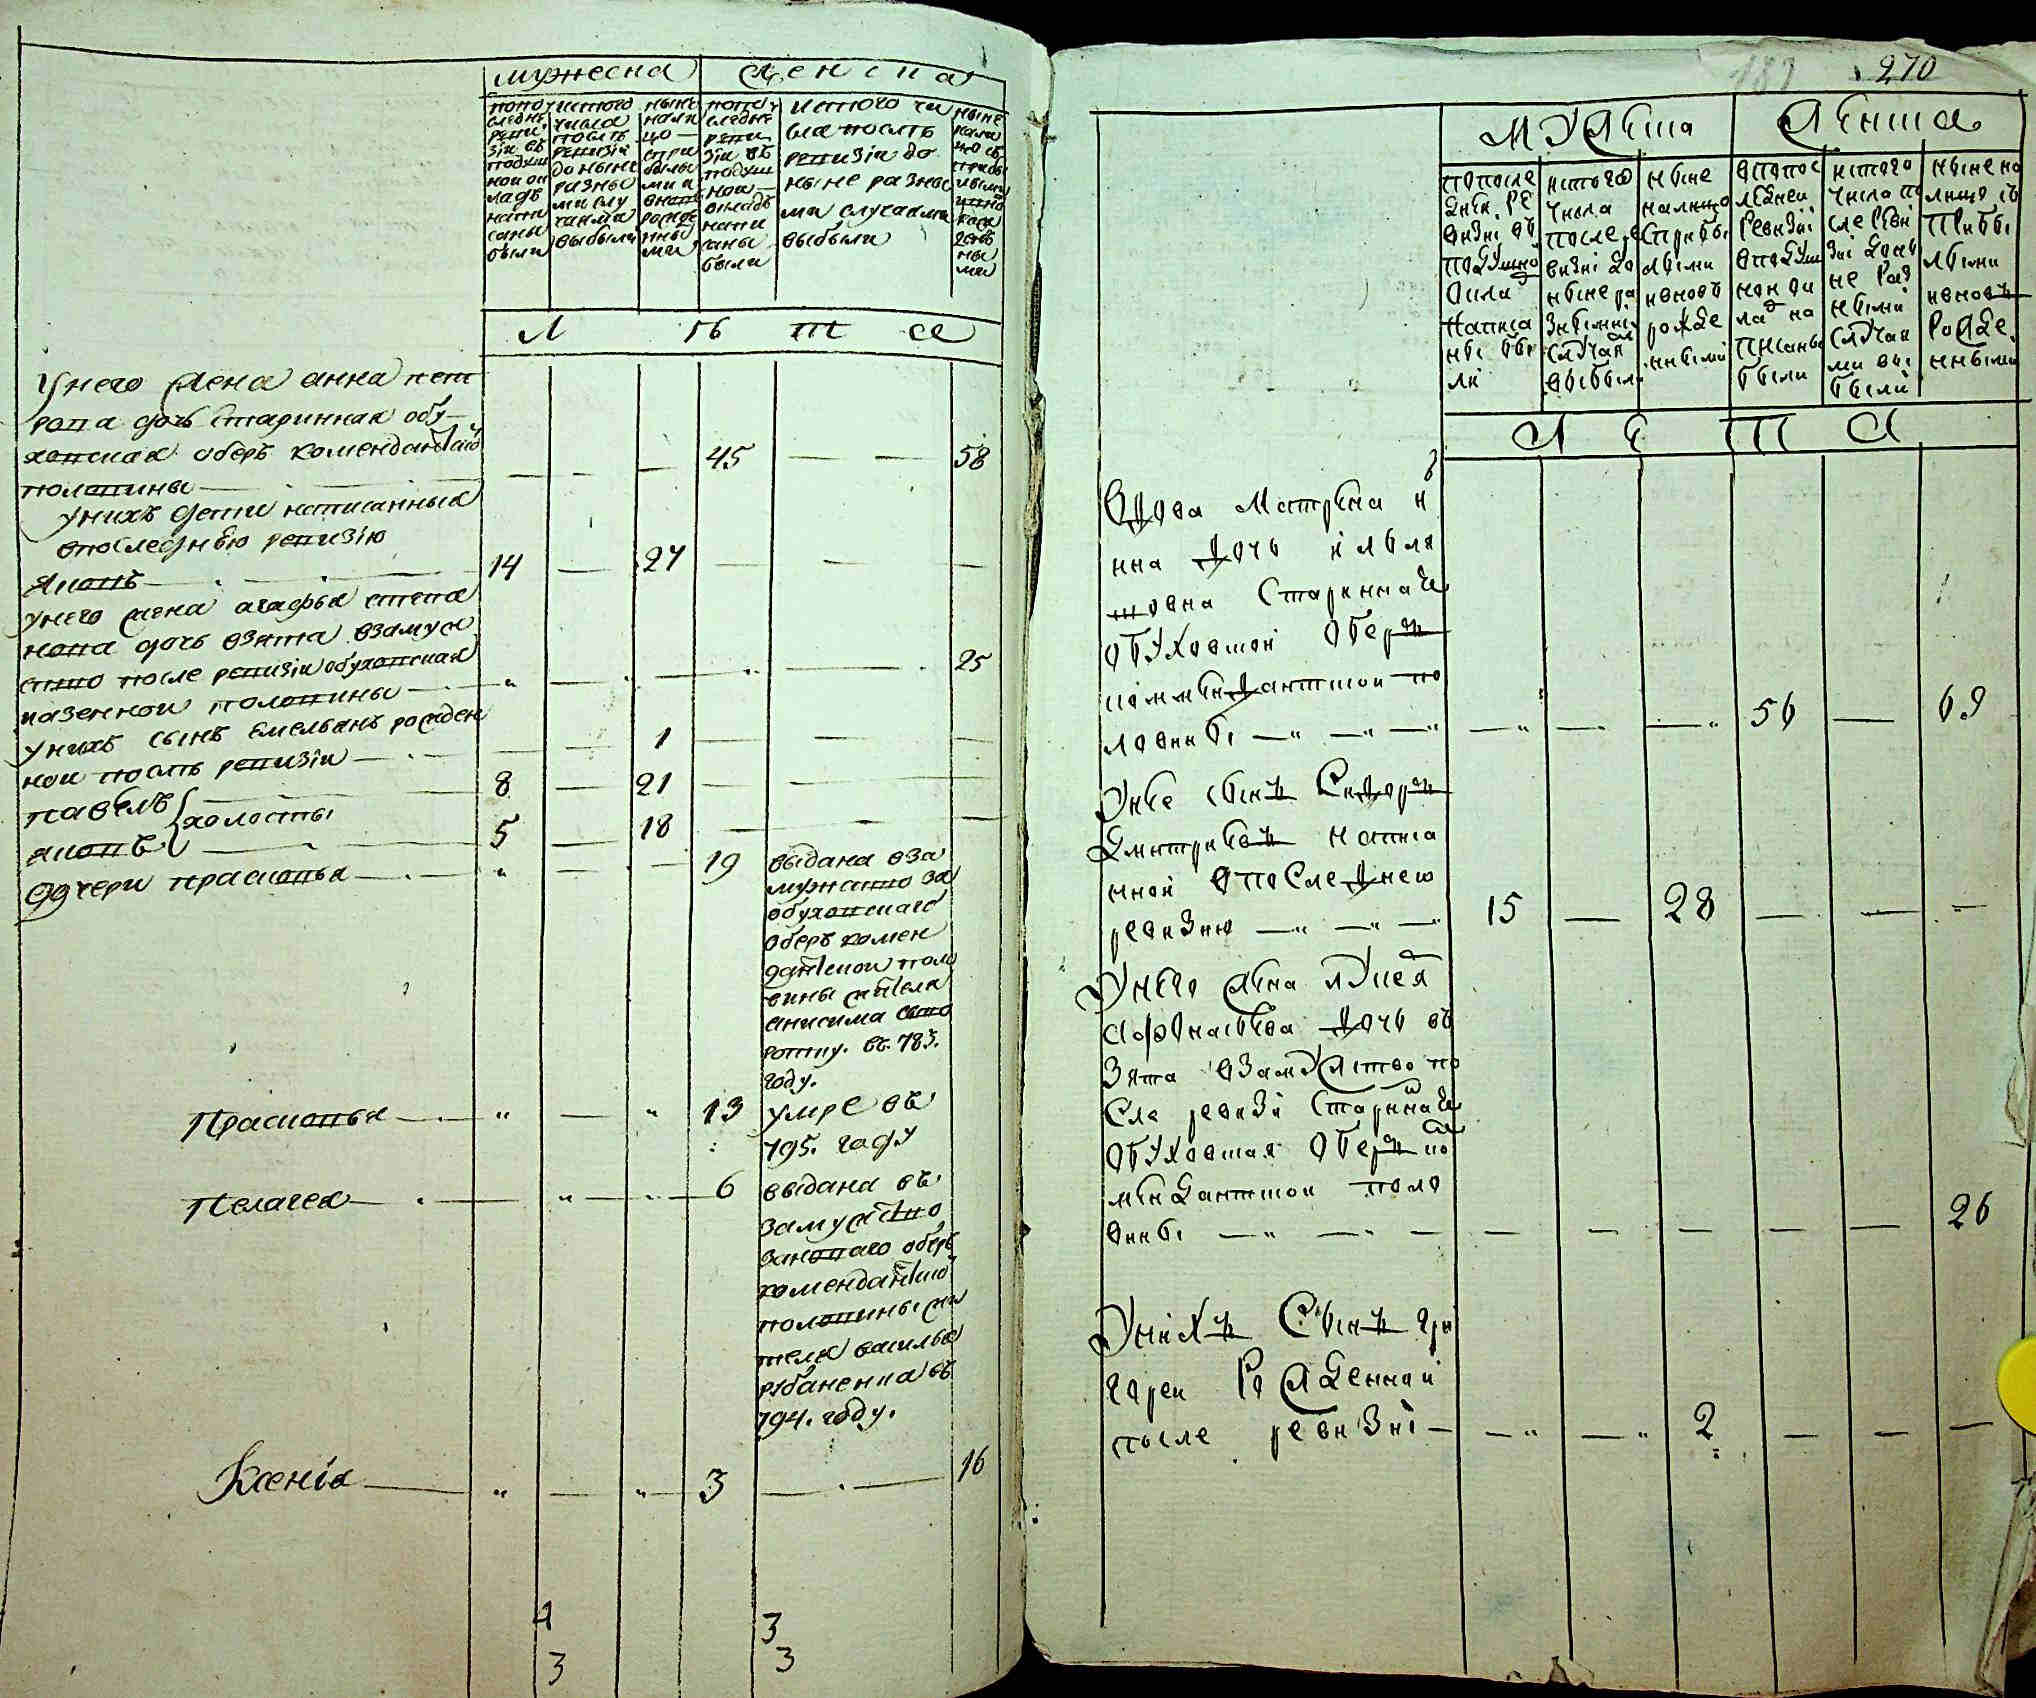 мужеска женска
попо следне реви зіи въ подуш нои ок ладъ напи саны были
истого числа послѣ ревизіи до ныне разны ми слу чаями выбыли
ныне нали цо спри былы ми и вновь рожде нны ми
попо следне реви зіи въ подуш нои окладъ напи саны были
истого чи сла послѣ ревизіи до ныне разны ми случаями выбыли
ныне нали цо съ прибы лыми вново рож денны ми
Л ѣ т а
Унего жена анна пет
рова дочь старинная обу
ховская оберъ комендантской
половины 45 58
унихъ дети написанныя
впоследнѣю ревизію
яковъ 14 27
унего жена агафья степа
нова дочь взята взамуж
ство после ревизіи обуховская
казенной половины 25
унихъ сынъ емельянъ рожден
нои послѣ ревизіи 1
павелъ 8 21
холосты
яковъ 5 18
дочери прасковья 19 выдана вза
мужство за
обуховскаго
оберъ комен
дантскои поло
вины жителя
анисима
въ 783.
году.
Прасковья 13 умре въ
795. году
Пелагея 6 выдана въ
замужство
оберъ
комендантской
половины жи
теля василья
въ
794. году.
Ксенія 3 16
4 3
3 3
270
МУЖеска Женска
попосле днеи ре визиі въ подушно оклад написа ны бы ли
истого числа после р евизиі до ныне ра зными случая выбыли
ныне налицо сприбы лыми ивновь рожде нными
впопос ледней ревизиі вподуш ной ок лад на писаны были
истого числа по сле реви зиі доны не раз ными случая ми вы были
ныне на лицо съ прибы лыми ивновъ рожде нными
Л е т а
Вдова Матрена и
нна дочь
овна Стариннаи
обуховской оберъ
комменданткой по
ловины 56 69
Унее сынъ Сидоръ
Дмитриевъ написа
нной впоследнею
ревизию 15 28
Унего жена лукея
афонасьева дочь въ
зята взамужство по
сле ревизи старинная
обуховская оберъ ко
мендантской поло
вины 26
Унихъ сынъ гри
гореи рожденной
после ревизиі 2